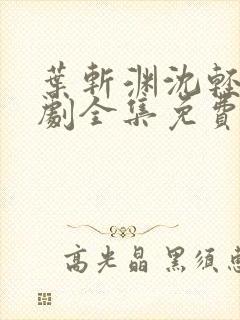 葉斬淵沈輕
劇全集免費
高光晶 黑須恵